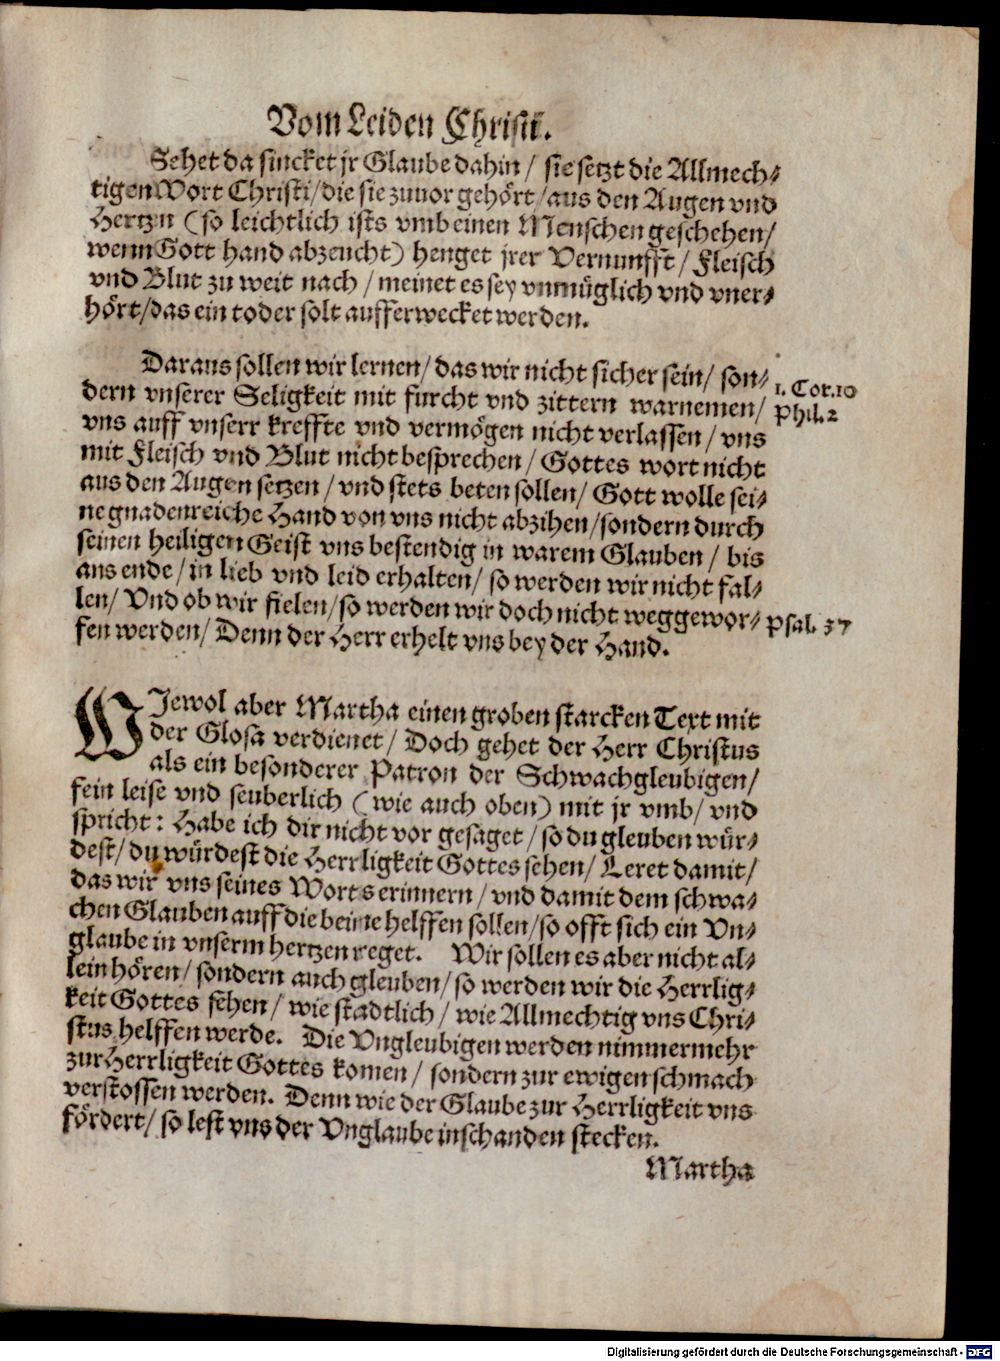 Vom Leiden Christi.
Sehet da sincket jr Glaube dahin / sie setzt die Allmech⸗
tigen Wort Christi / die sie zuuor gehört / aus den Augen vnd
Hertzn (so leichtlich ists vmb einen Menschen geschehen /
wenn Gott hand abzeucht) henget jrer Vernunfft / Fleisch
vnd Blut zu weit nach / meinet es sey vnmüglich vnd vner⸗
hört / das ein toder solt aufferwecket werden.
Daraus sollen wir lernen / das wir nicht sicher sein / son⸗
dern vnserer Seligkeit mit furcht vnd zittern warnemen /
vns auff vnserr kreffte vnd vermögen nicht verlassen / vns
mit Fleisch vnd Blut nicht besprechen / Gottes wort nicht
aus den Augen setzen / vnd stets beten sollen / Gott wolle sei⸗
ne gnadenreiche Hand von vns nicht abzihen / sondern durch
seinen heiligen Geist vns bestendig in warem Glauben / bis
ans ende / in lieb vnd leid erhalten / so werden wir nicht fal⸗
len / Vnd ob wir fielen / so werden wir doch nicht weggewor⸗
fen werden / Denn der Herr erhelt vns bey der Hand.
1. Cor. 10
Phil. 2
Psal. 37
WJewol aber Martha einen groben starcken Text mit
der Glosa verdienet / Doch gehet der Herr Christus
als ein besonderer Patron der Schwachgleubigen /
fein leise vnd seuberlich (wie auch oben) mit jr vmb / vnd
spricht: Habe ich dir nicht vor gesaget / so du gleuben wür⸗
dest / du würdest die Herrligkeit Gottes sehen / Leret damit /
das wir vns seines Worts erinnern / vnd damit dem schwa⸗
chen Glauben auff die beine helffen sollen / so offt sich ein Vn⸗
glaube in vnserm hertzen reget. Wir sollen es aber nicht al⸗
lein hören / sondern auch gleuben / so werden wir die Herrlig⸗
keit Gottes sehen / wie stadtlich / wie Allmechtig vns Chri⸗
stus helffen werde. Die Vngleubigen werden nimmermehr
zur Herrligkeit Gottes komen / sondern zur ewigen schmach
verstossen werden. Denn wie der Glaube zur Herrligkeit vns
fördert / so lest vns der Vnglaube in schanden stecken.
Martha
Digitalisierung gefördert durch die Deutsche Forschungsgemeinschaft - DFG